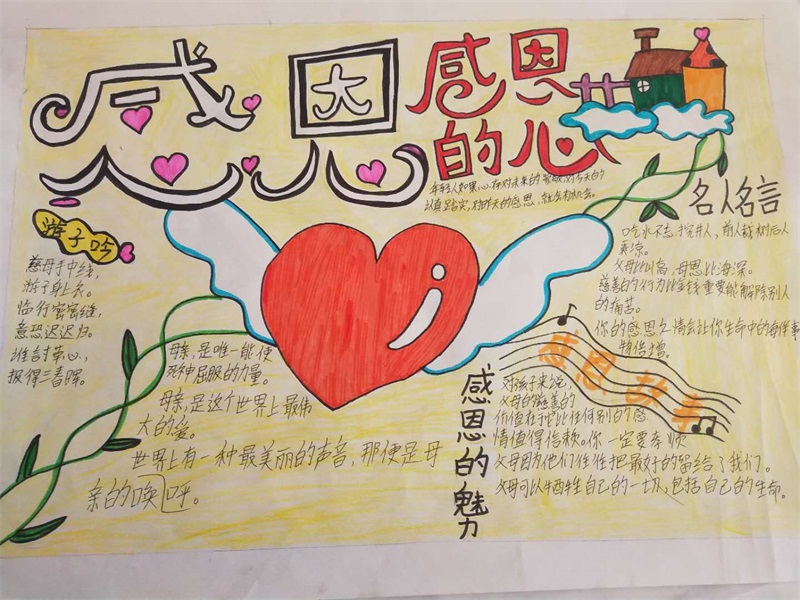 感恩
感恩
的心
年轻人如果心存对未来的
认真踏实,对昨天的感恩,就会有机会。
名人名言
吃水不忘挖井人,前人栽树后人
乘凉。
父母比山高,母恩比海深。
慈善的行为比金钱更重要能解除别人
的痛苦。
你的感恩之情会让你生命中的每件事
物倍增。
游子吟
慈母手中线,
游子身上衣。
临行密密缝,
意恐迟迟归。
谁言寸草心,
报得三春晖。
母亲,是唯一能使
死神屈服的力量。
母亲,是这个世界上最伟
大的爱。
世界上有一种最美丽的声音,那便是母
亲的唤呼。
感恩的魅力
感恩故事
对孩子来说,
父母的慈善的
价值在于它比任何别的感
情值得信赖。你一定要孝顺
父母因为他们往往把最好的留给了我们。
父母可以牺牲自己的一切,包括自己的生命。